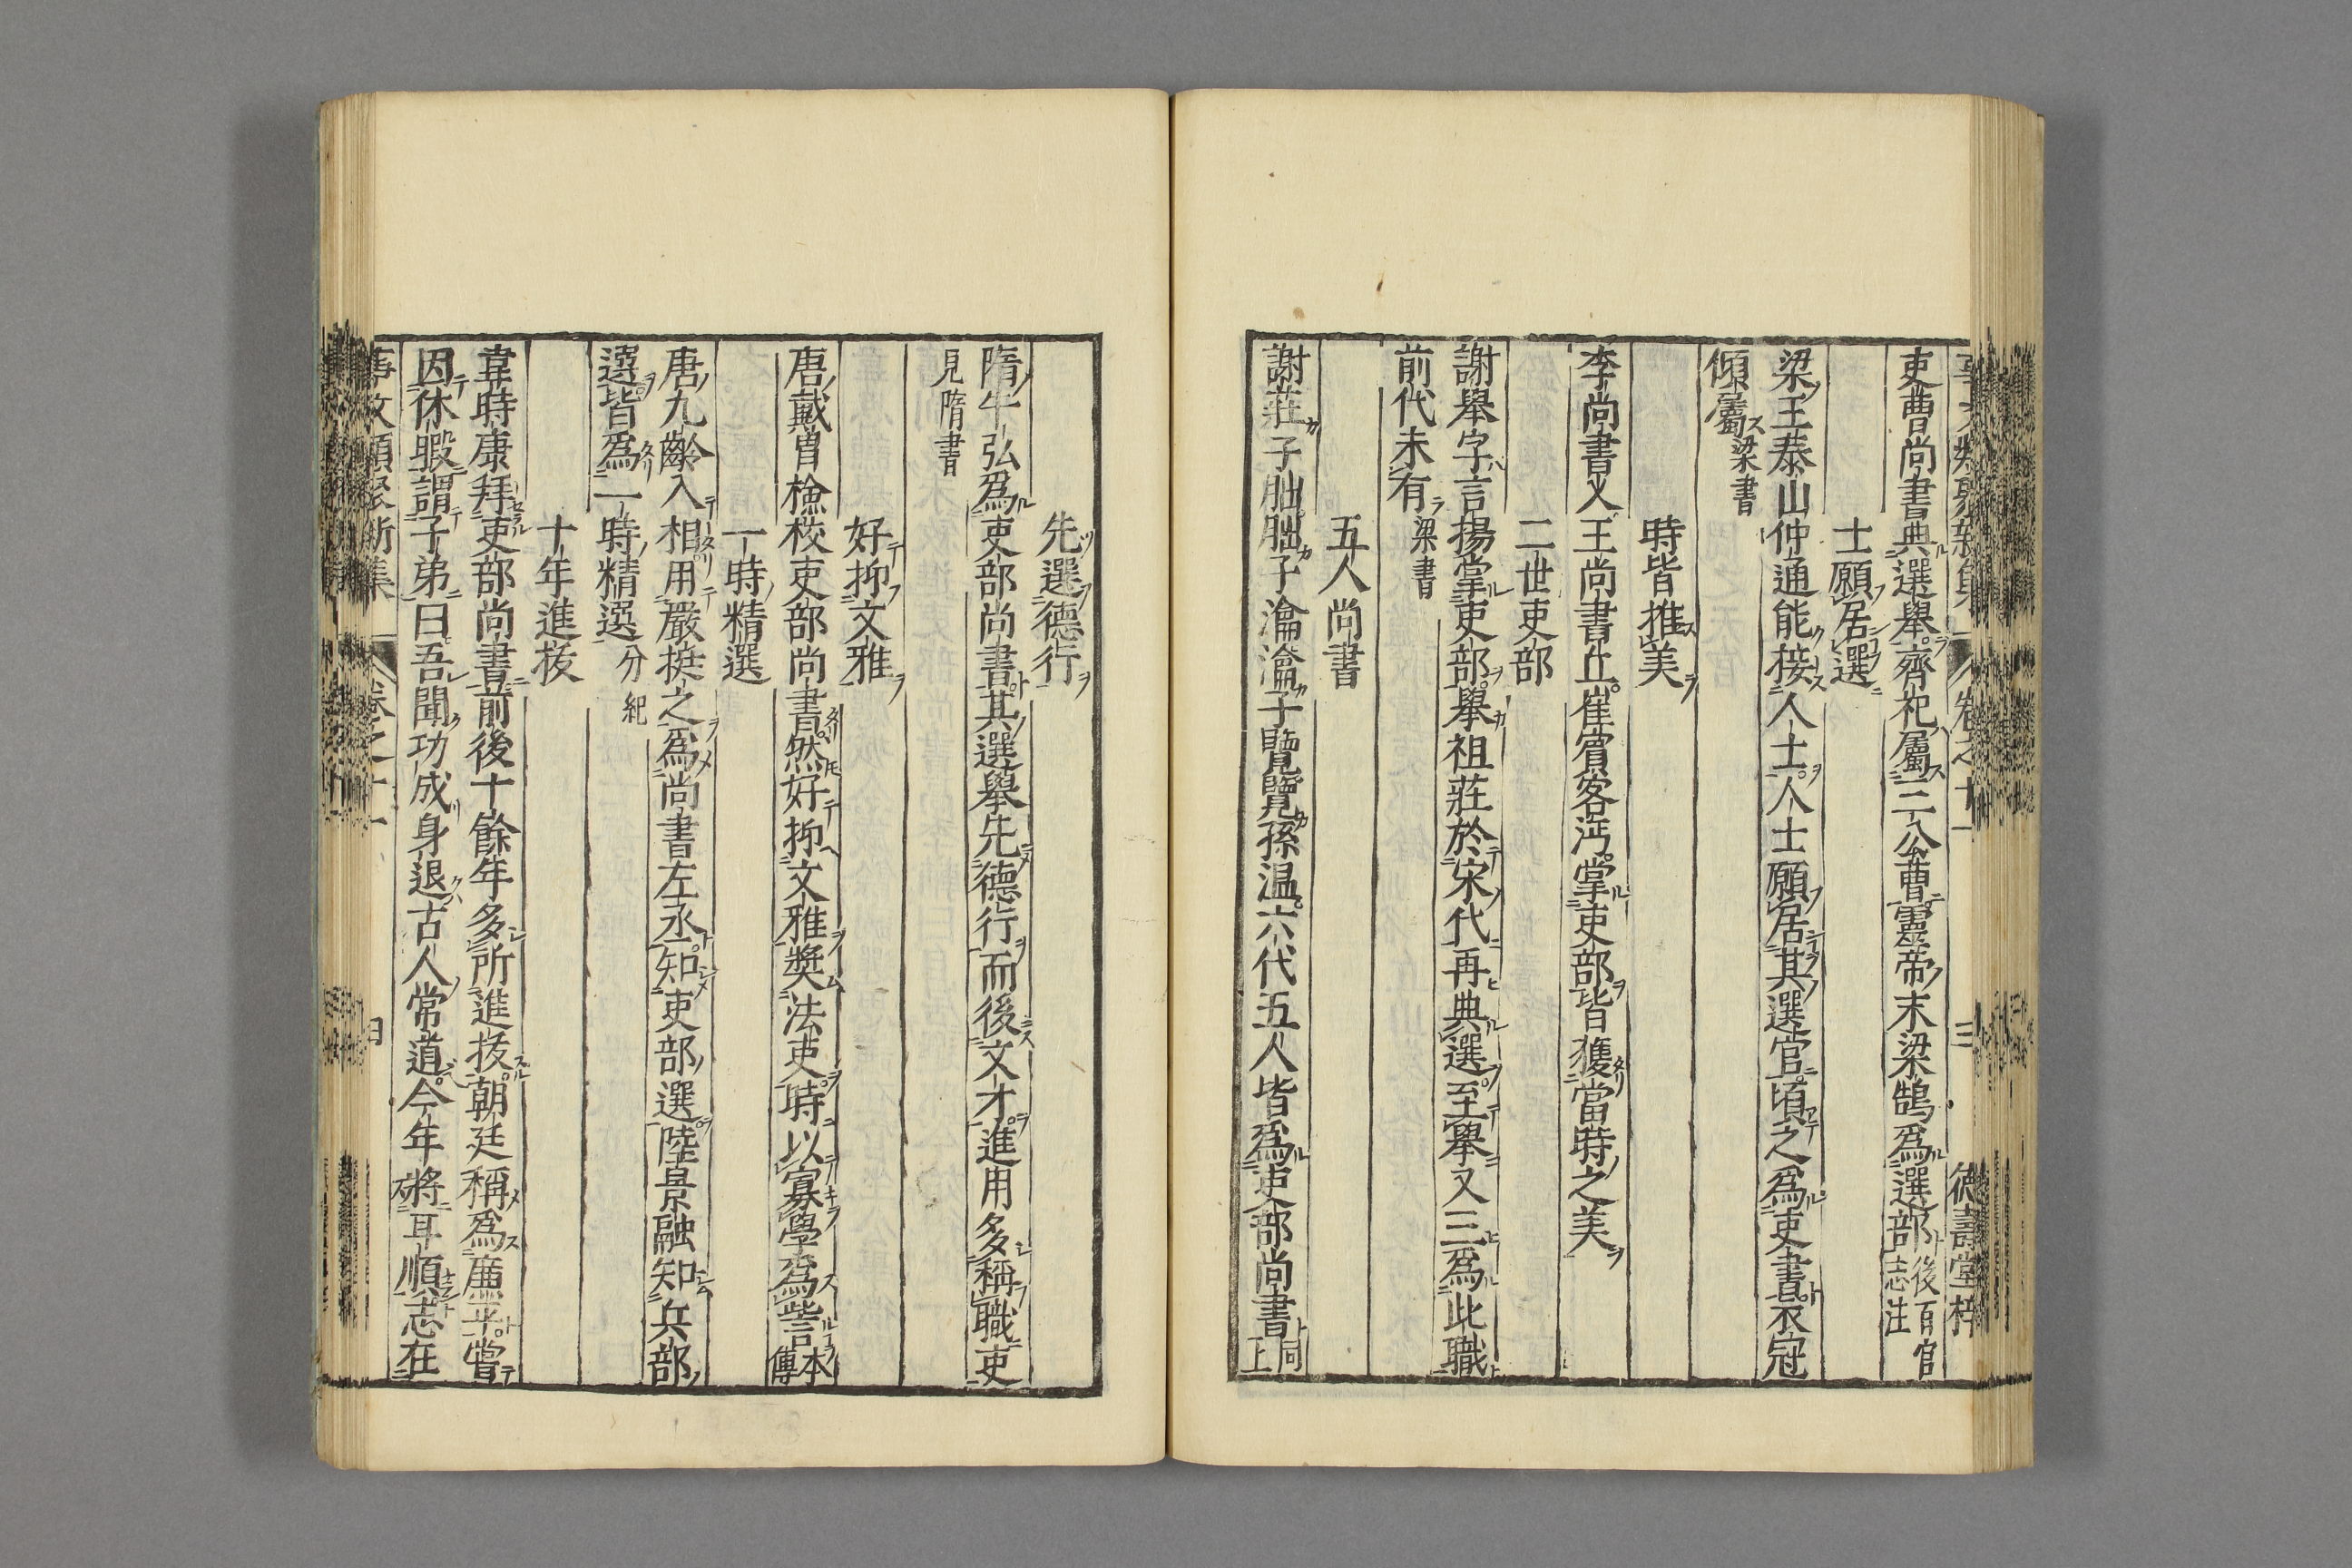 吏曹尚書典選舉齊祀屬三公曹靈帝末梁鵠為選部後百官志注
士願居選
梁王泰山仲通能接人士人士願居其選官頃之為吏書衣冠
傾屬梁書
時皆推美
李尚書乂王尚書丘崔賓客沔掌吏部皆獲當時之美
二世吏部
謝舉字言揚掌吏部舉祖莊於宋代再典選至舉又三為此職
前代未有梁書
五人尚書
謝莊子朏朏子瀹瀹子覽覽孫温六代五人皆為吏部尚書同上
先選德行
隋牛弘為吏部尚書其選舉先德行而後文才進用多稱職吏
見隋書
好抑文雅
唐戴胄檢校吏部尚書然好抑文雅奬法吏時以寡學為訾本傳
一時精選
唐九齡入相用嚴挺之為尚書左丞知吏部選陸景融知兵部
選皆為一時精選分紀
十年進拔
韋時康拜吏部尚書前後十餘年多所進拔朝廷稱為廉平嘗
因休暇謂子弟曰吾聞功成身退古人常道今年將耳順志在
卷之十一